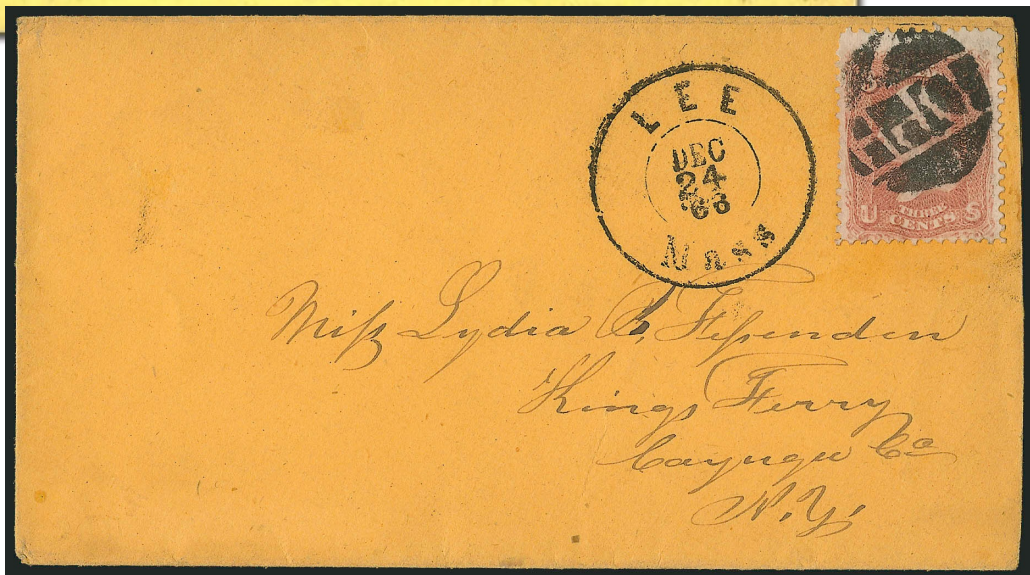 LEE
DEC
24
'66
Mass
U THREE S
CENTS
Miss Lydia B. Fessenden
Kings Ferry
Cayuga Co
N.Y.